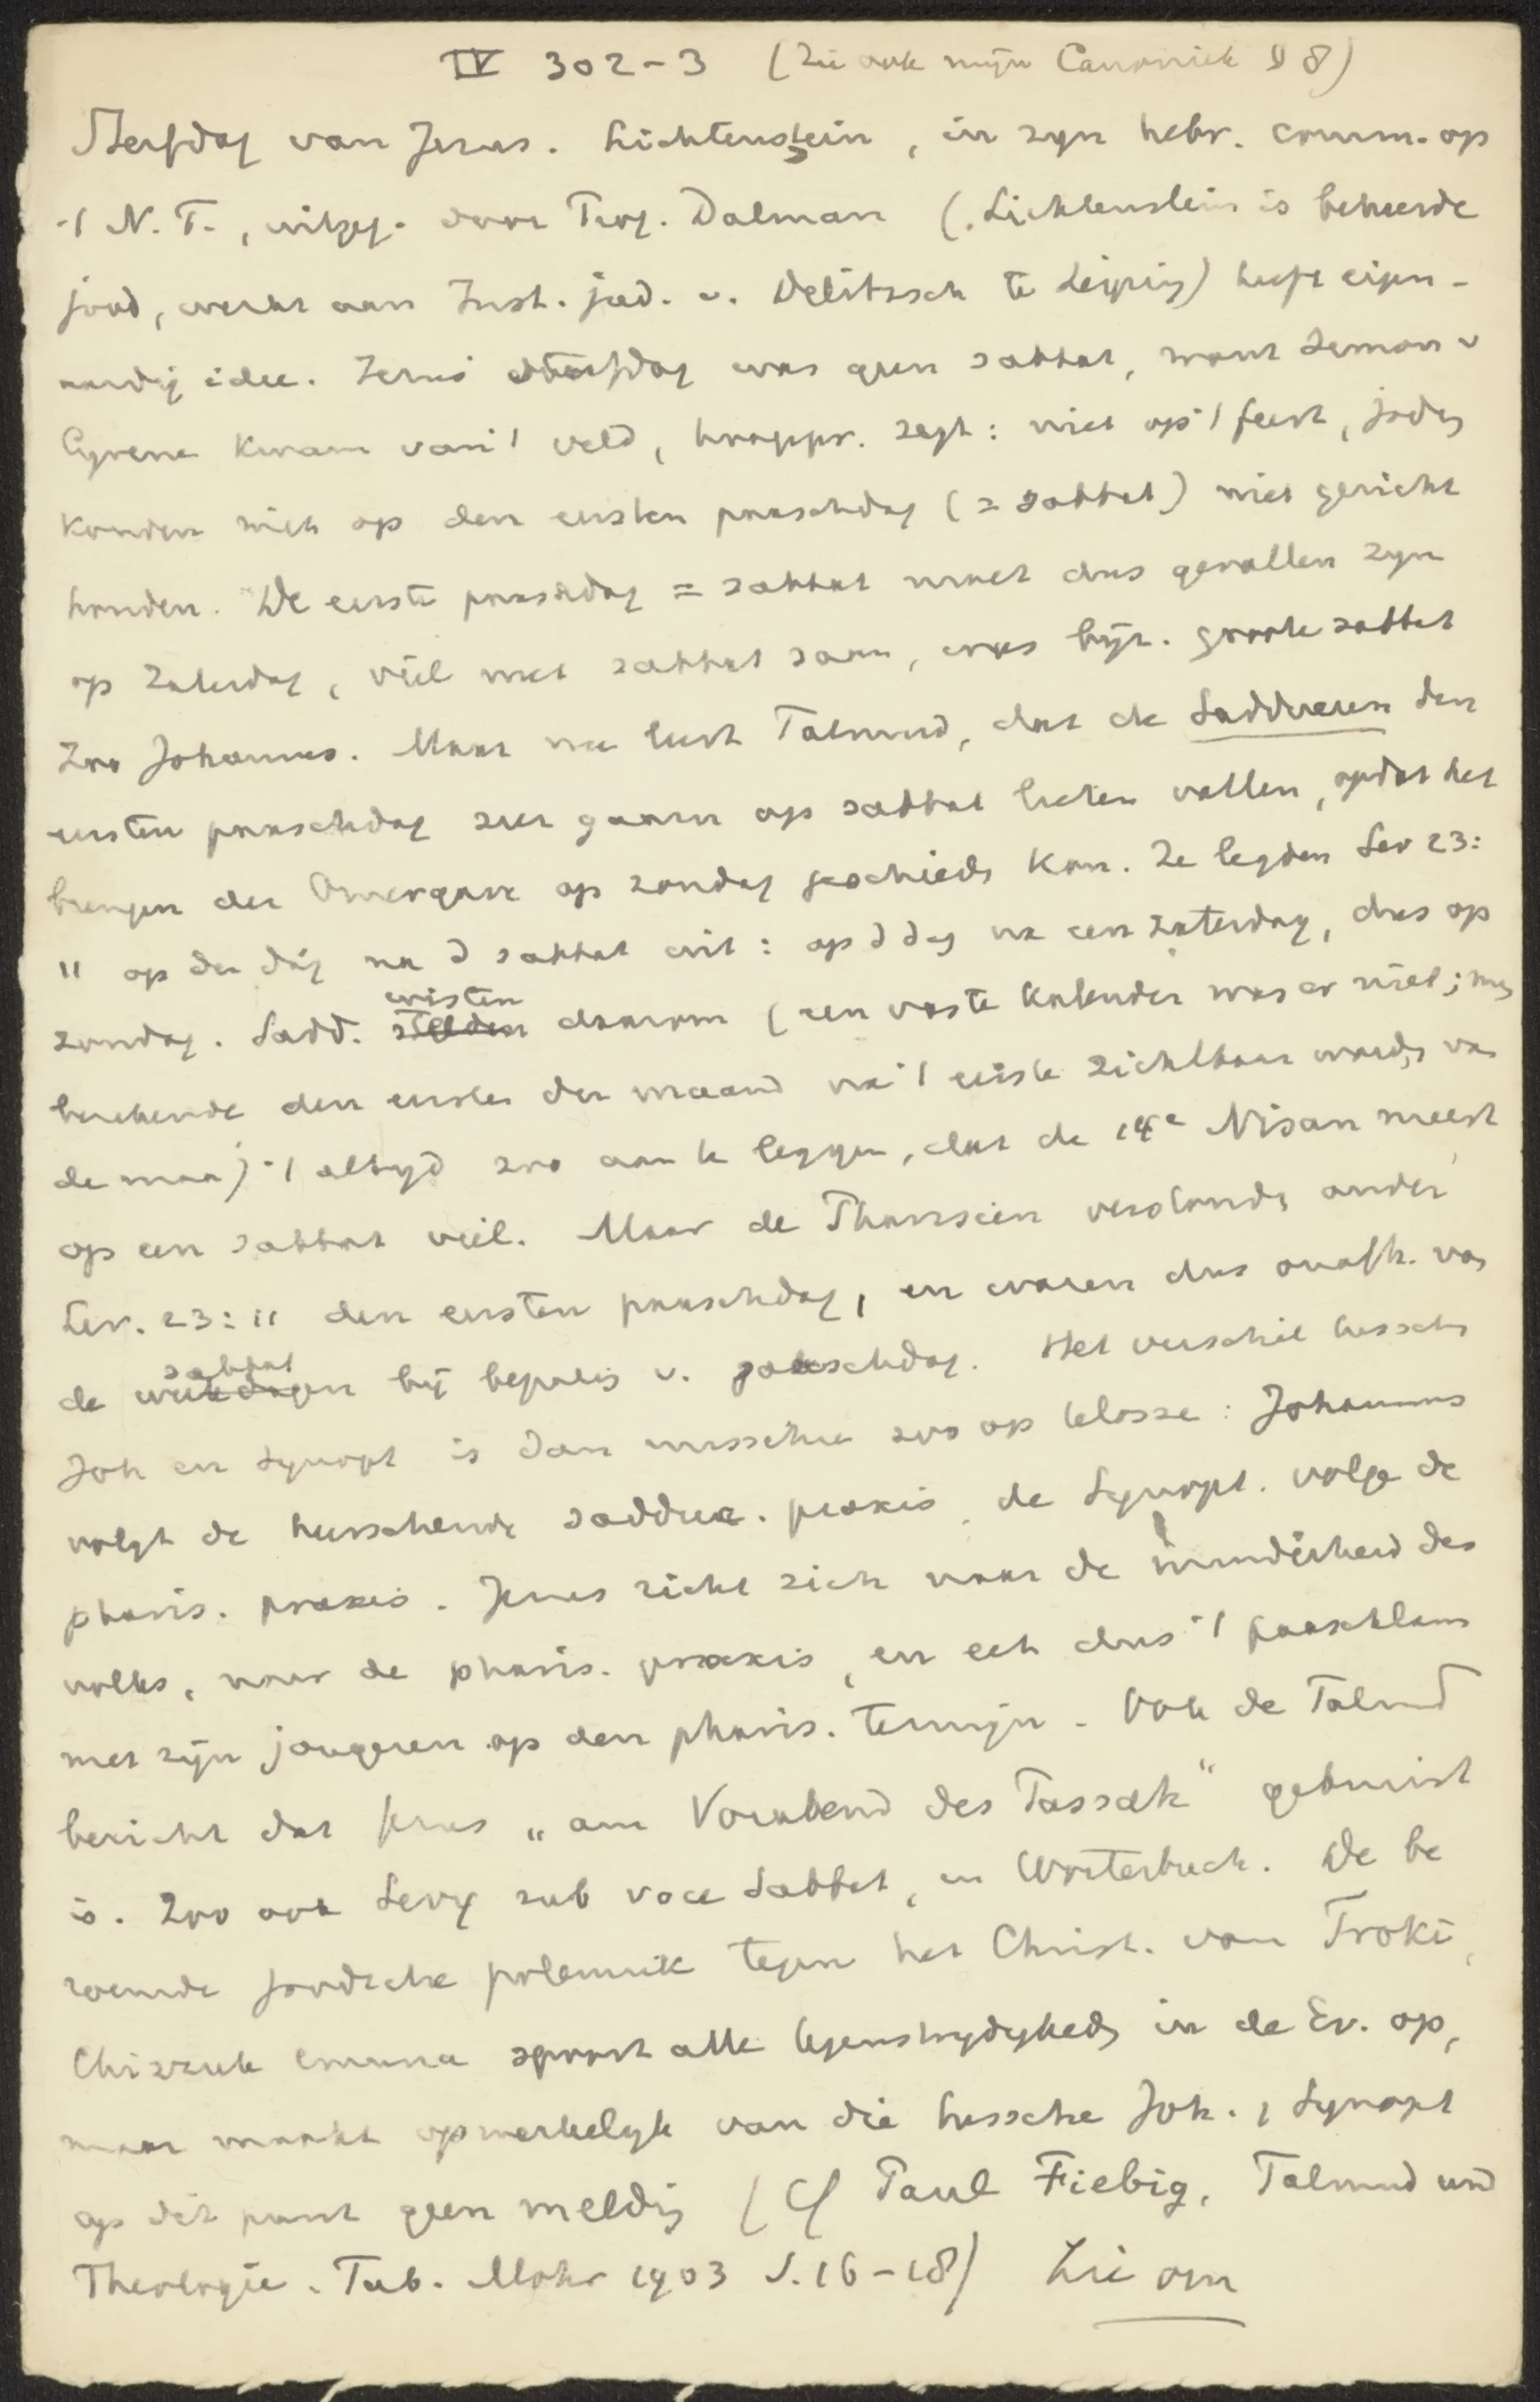 IV 302-3 (Zie ook mijn Canoniek § 8)
Sterfdag van Jezus. Lichtenstein, in zyn hebr. comm. op
't N. T., uitgeg. door Prof. Dalman (Lichtenstein is bekeerde
jood, werkt aan Inst. jud. v. Delitzsch te Leipzig) heeft eigen-
aardig idee. Jezus' sterfdag was geen sabbat, want Simon v
Cyrene kwam van 't veld, zegt: niet op 't feest, joden
konden niet op den eersten paaschdag (= sabbat) niet gericht
houden. De eerste paaschdag = sabbat moet dus gevallen zyn
op Zaterdag, viel met sabbat saam, was byz. groote sabbat
Zoo Johannes. Maar nu leert Talmud, dat de Sadduceen den
eersten paaschdag zeer gaarn op sabbat lieten vallen, opdat het
brengen der Omergave op zondag geschieden kon. Ze legden Lev 23:
11 op den dag na d sabbat uit: op d dag na een zaterdag, dus op
zondag. Sadd. stelden wisten daarom (een vaste kalender was er niet; men
berekende den eersten der maand na 't eerste zichtbaar worden van
de maan) 't altyd zoo aan te leggen, dat de 14e Nisan meest
op een sabbat viel. Maar de Pharizeën verstonden onder
Lev. 23:11 den eersten paaschdag, en waren dus onafh. van
de weekdagen sabbat bij bepaling v. paaschdag. Het verschil tusschen
Joh en Synopt is dan misschien zoo op te lossen: Johannes
volgt de heerschende sadduc. praxis, de Synopt. volgen de
pharis. praxis. Jezus richt zich naar de minderheid des
volks, naar de pharis. praxis, en eet dus 't paaschlam
met zijn jongeren op den pharis. termijn. Ook de Talmud
bericht dat Jezus „am Vorabend des Passah" gekruist
is. Zoo ook Levy sub voce Sabbat, in Wörterbuch. De be
roemde joodsche polemiek tegen het Christ. van Troki,
Chizzuk Emuna spoort alle tegenstrydigheden in de Ev. op,
maar maakt opmerkelyk van die tusschen Joh. & Synopt
op dit punt geen melding (Cf Paul Fiebig, Talmud und
Theologie. Tub. Mohr 1903 S. 16-18) Zie om